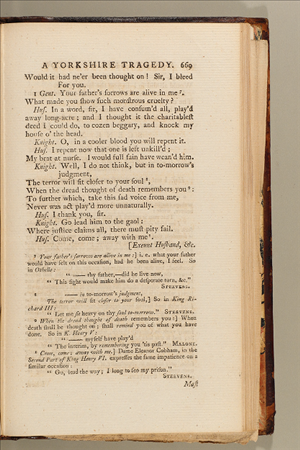 A YORKSHIRE TRAGEDY. 669
Would it had ne'er been thought on! Sir, I bleed
For you.
1 Gent. Your father's sorrows are alive in me 7.
What made you show such monstrous cruelty?
Hus. In a word, sir, I have consum'd all, play'd
away long-acre; and I thought it the charitablest
deed I could do, to cozen beggary, and knock my
house o' the head.
Knight. O, in a cooler blood you will repent it.
Hus. I repent now that one is left unkill'd;
My brat at nurse. I would full fain have wean'd him.
Knight. Well, I do not think, but in to-morrow's
judgment,
The terror will sit closer to your soul 8,
When the dread thought of death remembers you 9:
To further which, take this sad voice from me,
Never was act play'd more unnaturally.
Hus. I thank you, sir.
Knight. Go lead him to the gaol:
Where justice claims all, there must pity fail.
Hus. Come, come; away with me 1.
[Exeunt Husband, &c.
7 Your father's sorrows are alive in me:] i. e. what your father
would have felt on this occasion, had he been alive, I feel. So
in Othello:
" —— thy father,—did he live now,
" This sight would make him do a desperate turn, &c."
STEEVENS.
8 —— in to-morrow's judgment,
The terror will sit closer to your soul,] So in King Ri-
chard III:
" Let me sit heavy on thy soul to-morrow." STEEVENS.
9 When the dread thought of death remembers you:] When
death shall be thought on; shall remind you of what you have
done. So in K. Henry V:
" —— myself have play'd
" The interim, by remembering you 'tis past." MALONE.
1 Come, come; away with me.] Dame Eleanor Cobham, in the
Second Part of King Henry VI. expresses the same impatience on a
similar occasion:
" Go, lead the way; I long to see my prison."
STEEVENS.
Must